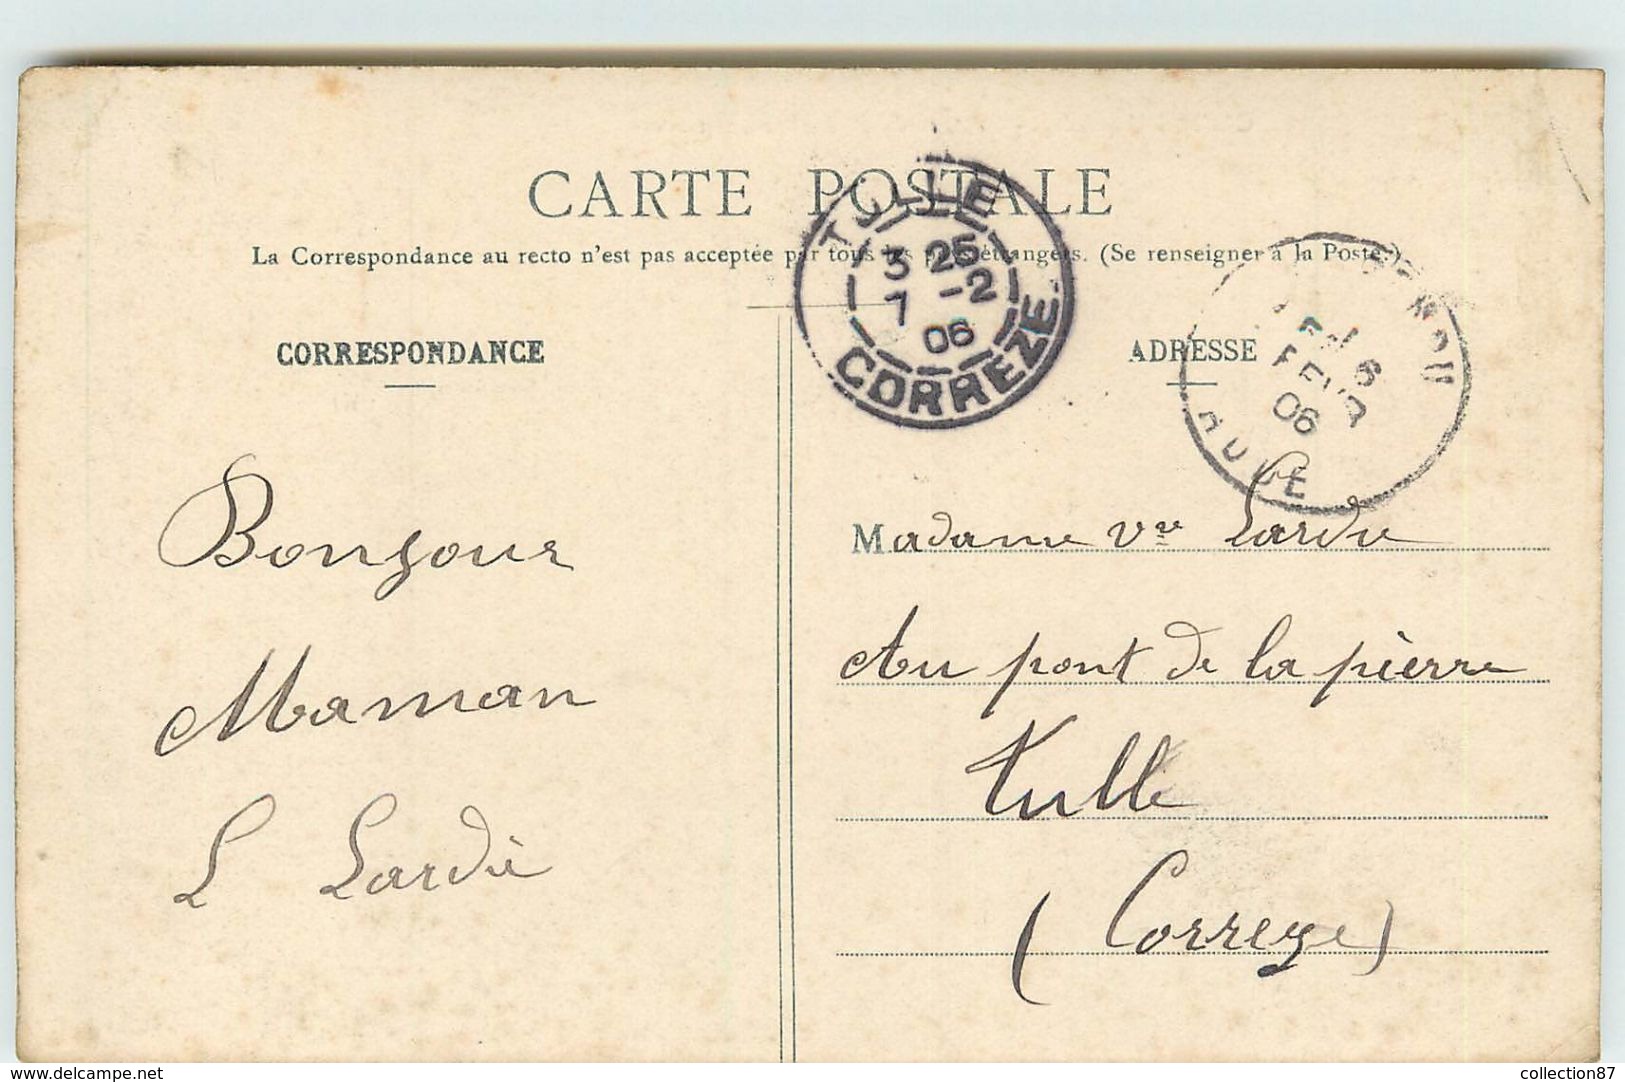 CARTE POSTALE
La Correspondance au recto n'est pas acceptée par tous les pays étrangers. (Se renseigner à la Poste.)
TULLE
3 25
7 -2
06
CORREZE
CORRESPONDANCE
ADRESSE
6
FEVR
06
AUDE
Bonjour
Maman
L Lardie
Madame Vve Lardie
Au pont de la pierre
Tulle
(Correze)
delcampe.net
collection87